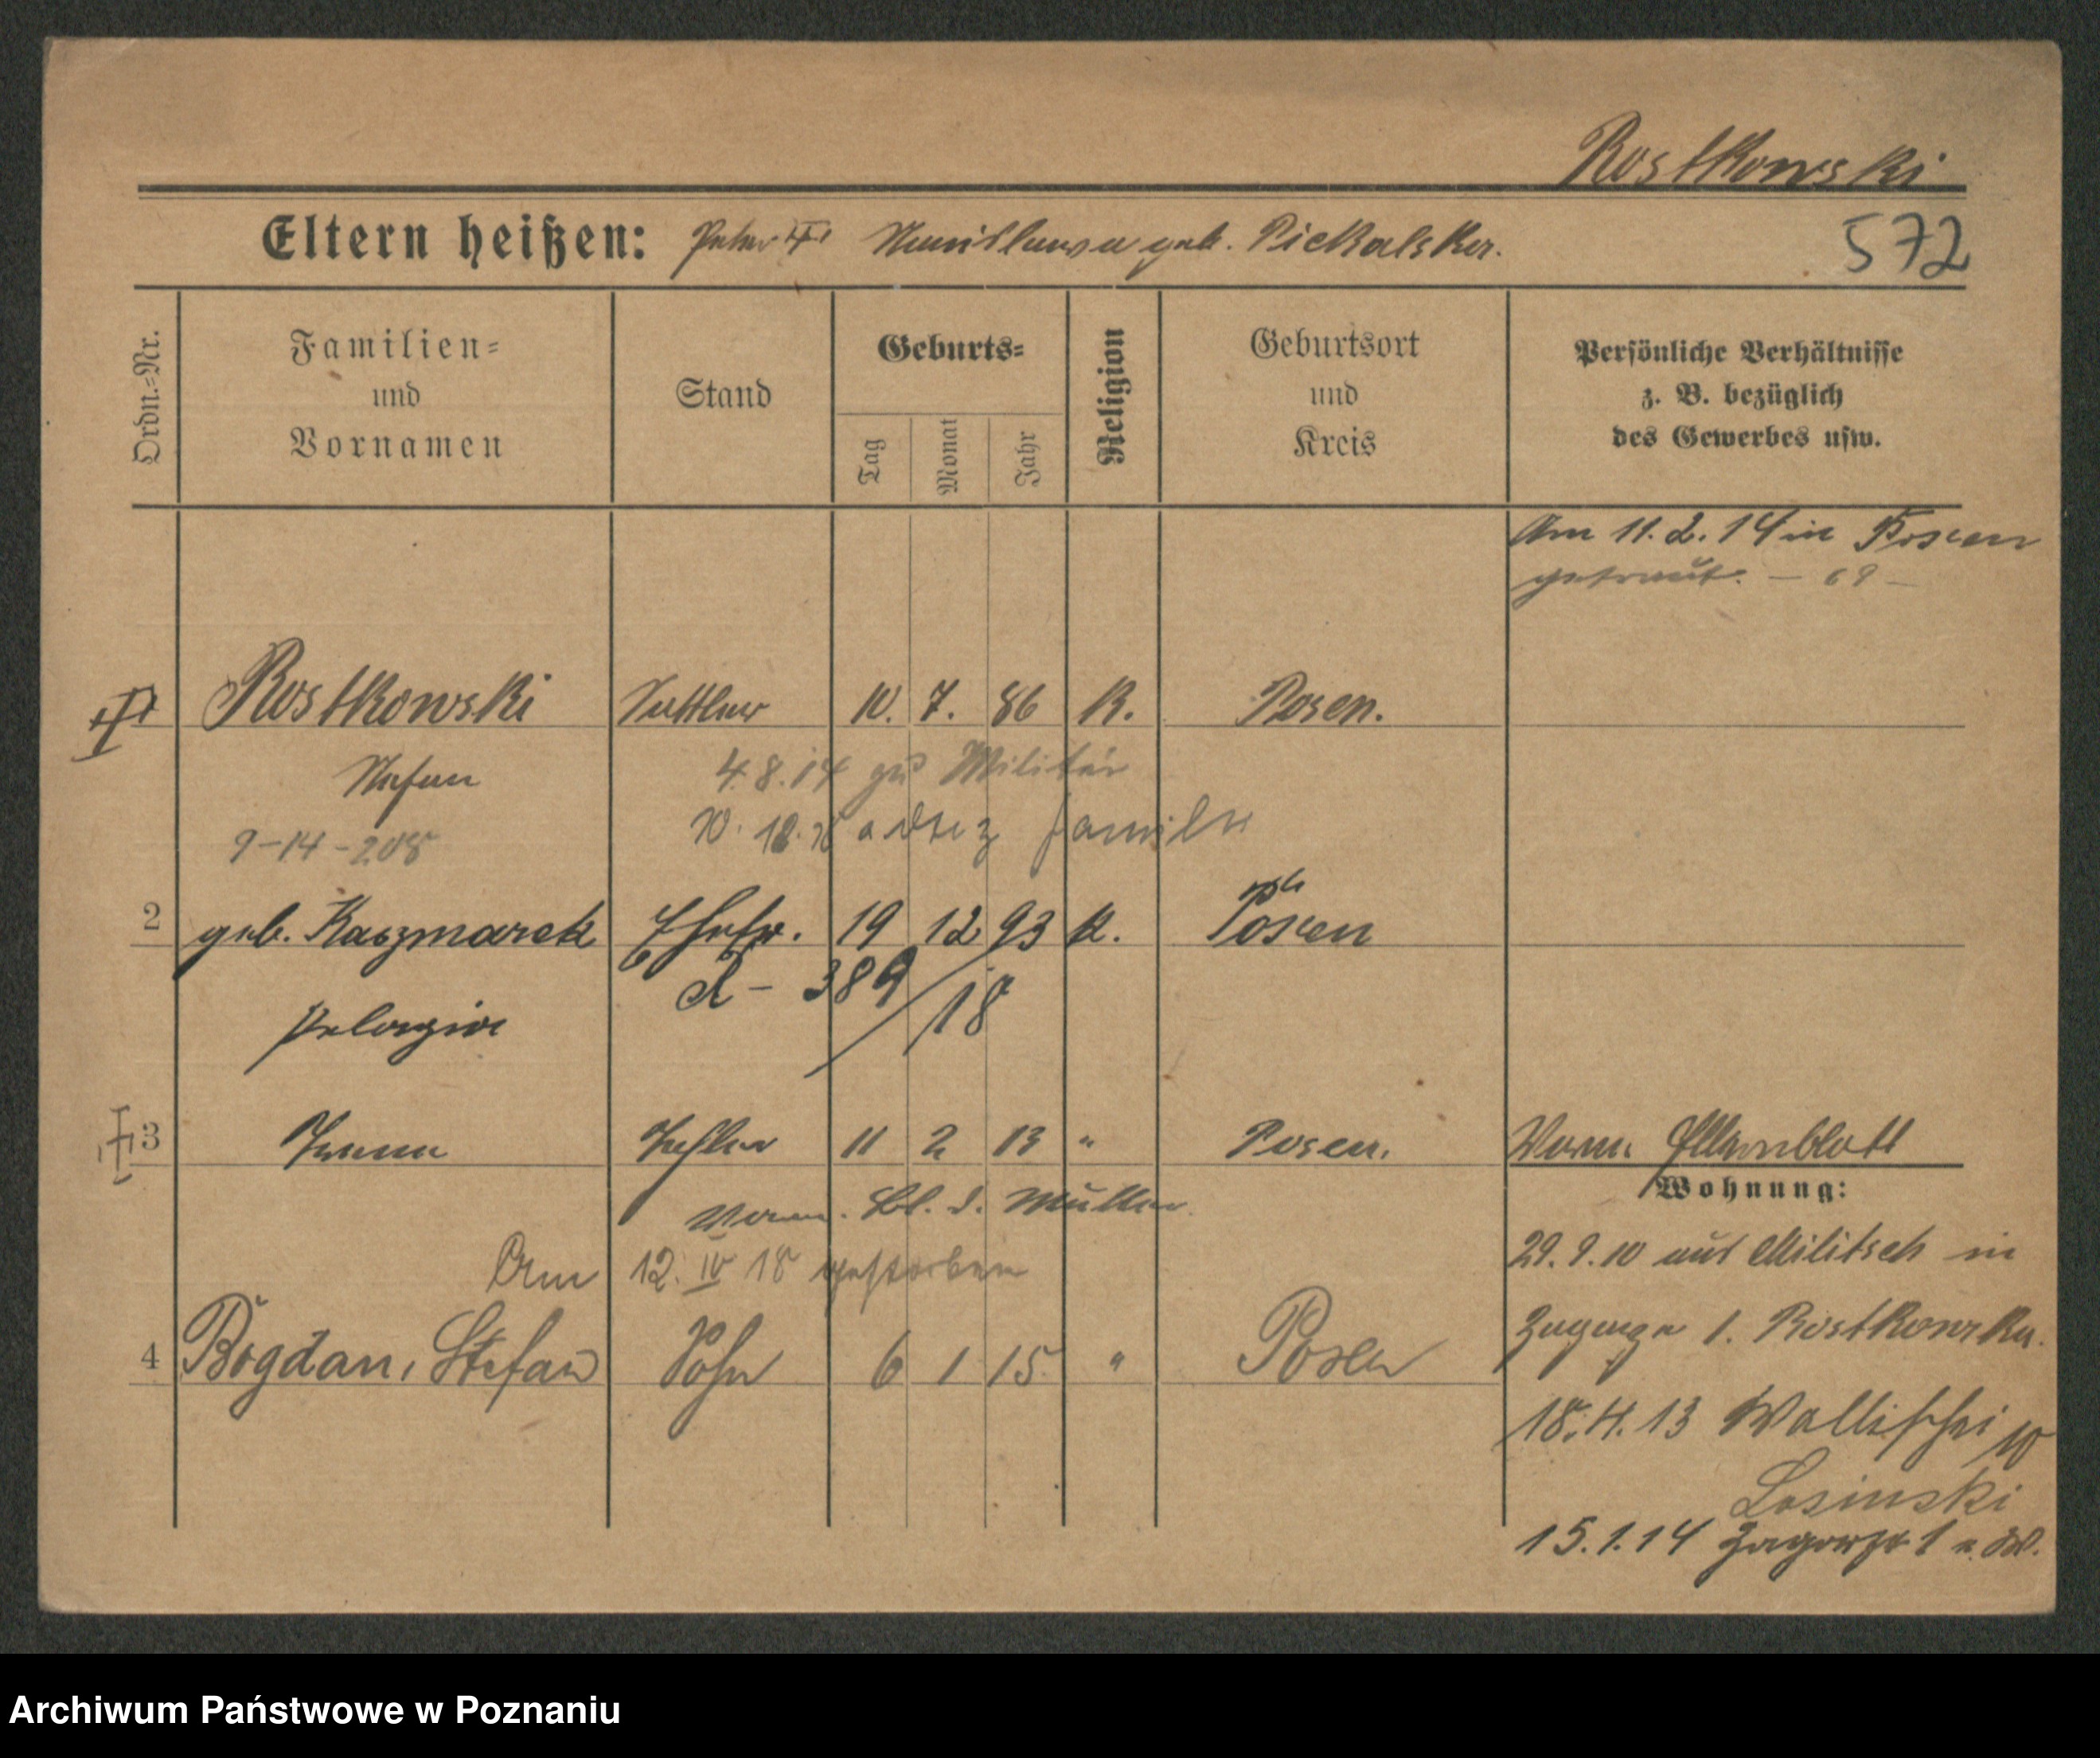 Rostkowski
Eltern heißen: Peter geb. Piekalska.
572
Ordn.-Nr.
Familien-
und
Vornamen
Stand
Geburts-
Tag
Monat
Jahr
Religion
Geburtsort
und
Kreis
Persönliche Verhältnisse
z. B. bezüglich
des Gewerbes usw.
Am 11.2.14 in Posen
getraut. — 69 —
Rostkowski Sattler 10. 7. 86 K. Posen.
Stefan 4.8.14 zu Militär
9-14-208
Familie
2 geb. Kaczmarek Ehefr. 19 12 93 K. Posen
389/18
Pelagia
3 Irena Tochter 11 2 13 " Posen. Vorm.
Wohnung:
Vorm. Bl. d. Mutter.
Am 12. IV 18 gestorben
29.9.10 aus Militsch in
4 Bogdan, Stefan Sohn 6 1 15 " Posen
Zagorze 1. Rostkowska.
18.4.13 Wallischei 10
Losinski
15.1.14 Zagorze 1
Archiwum Państwowe w Poznaniu